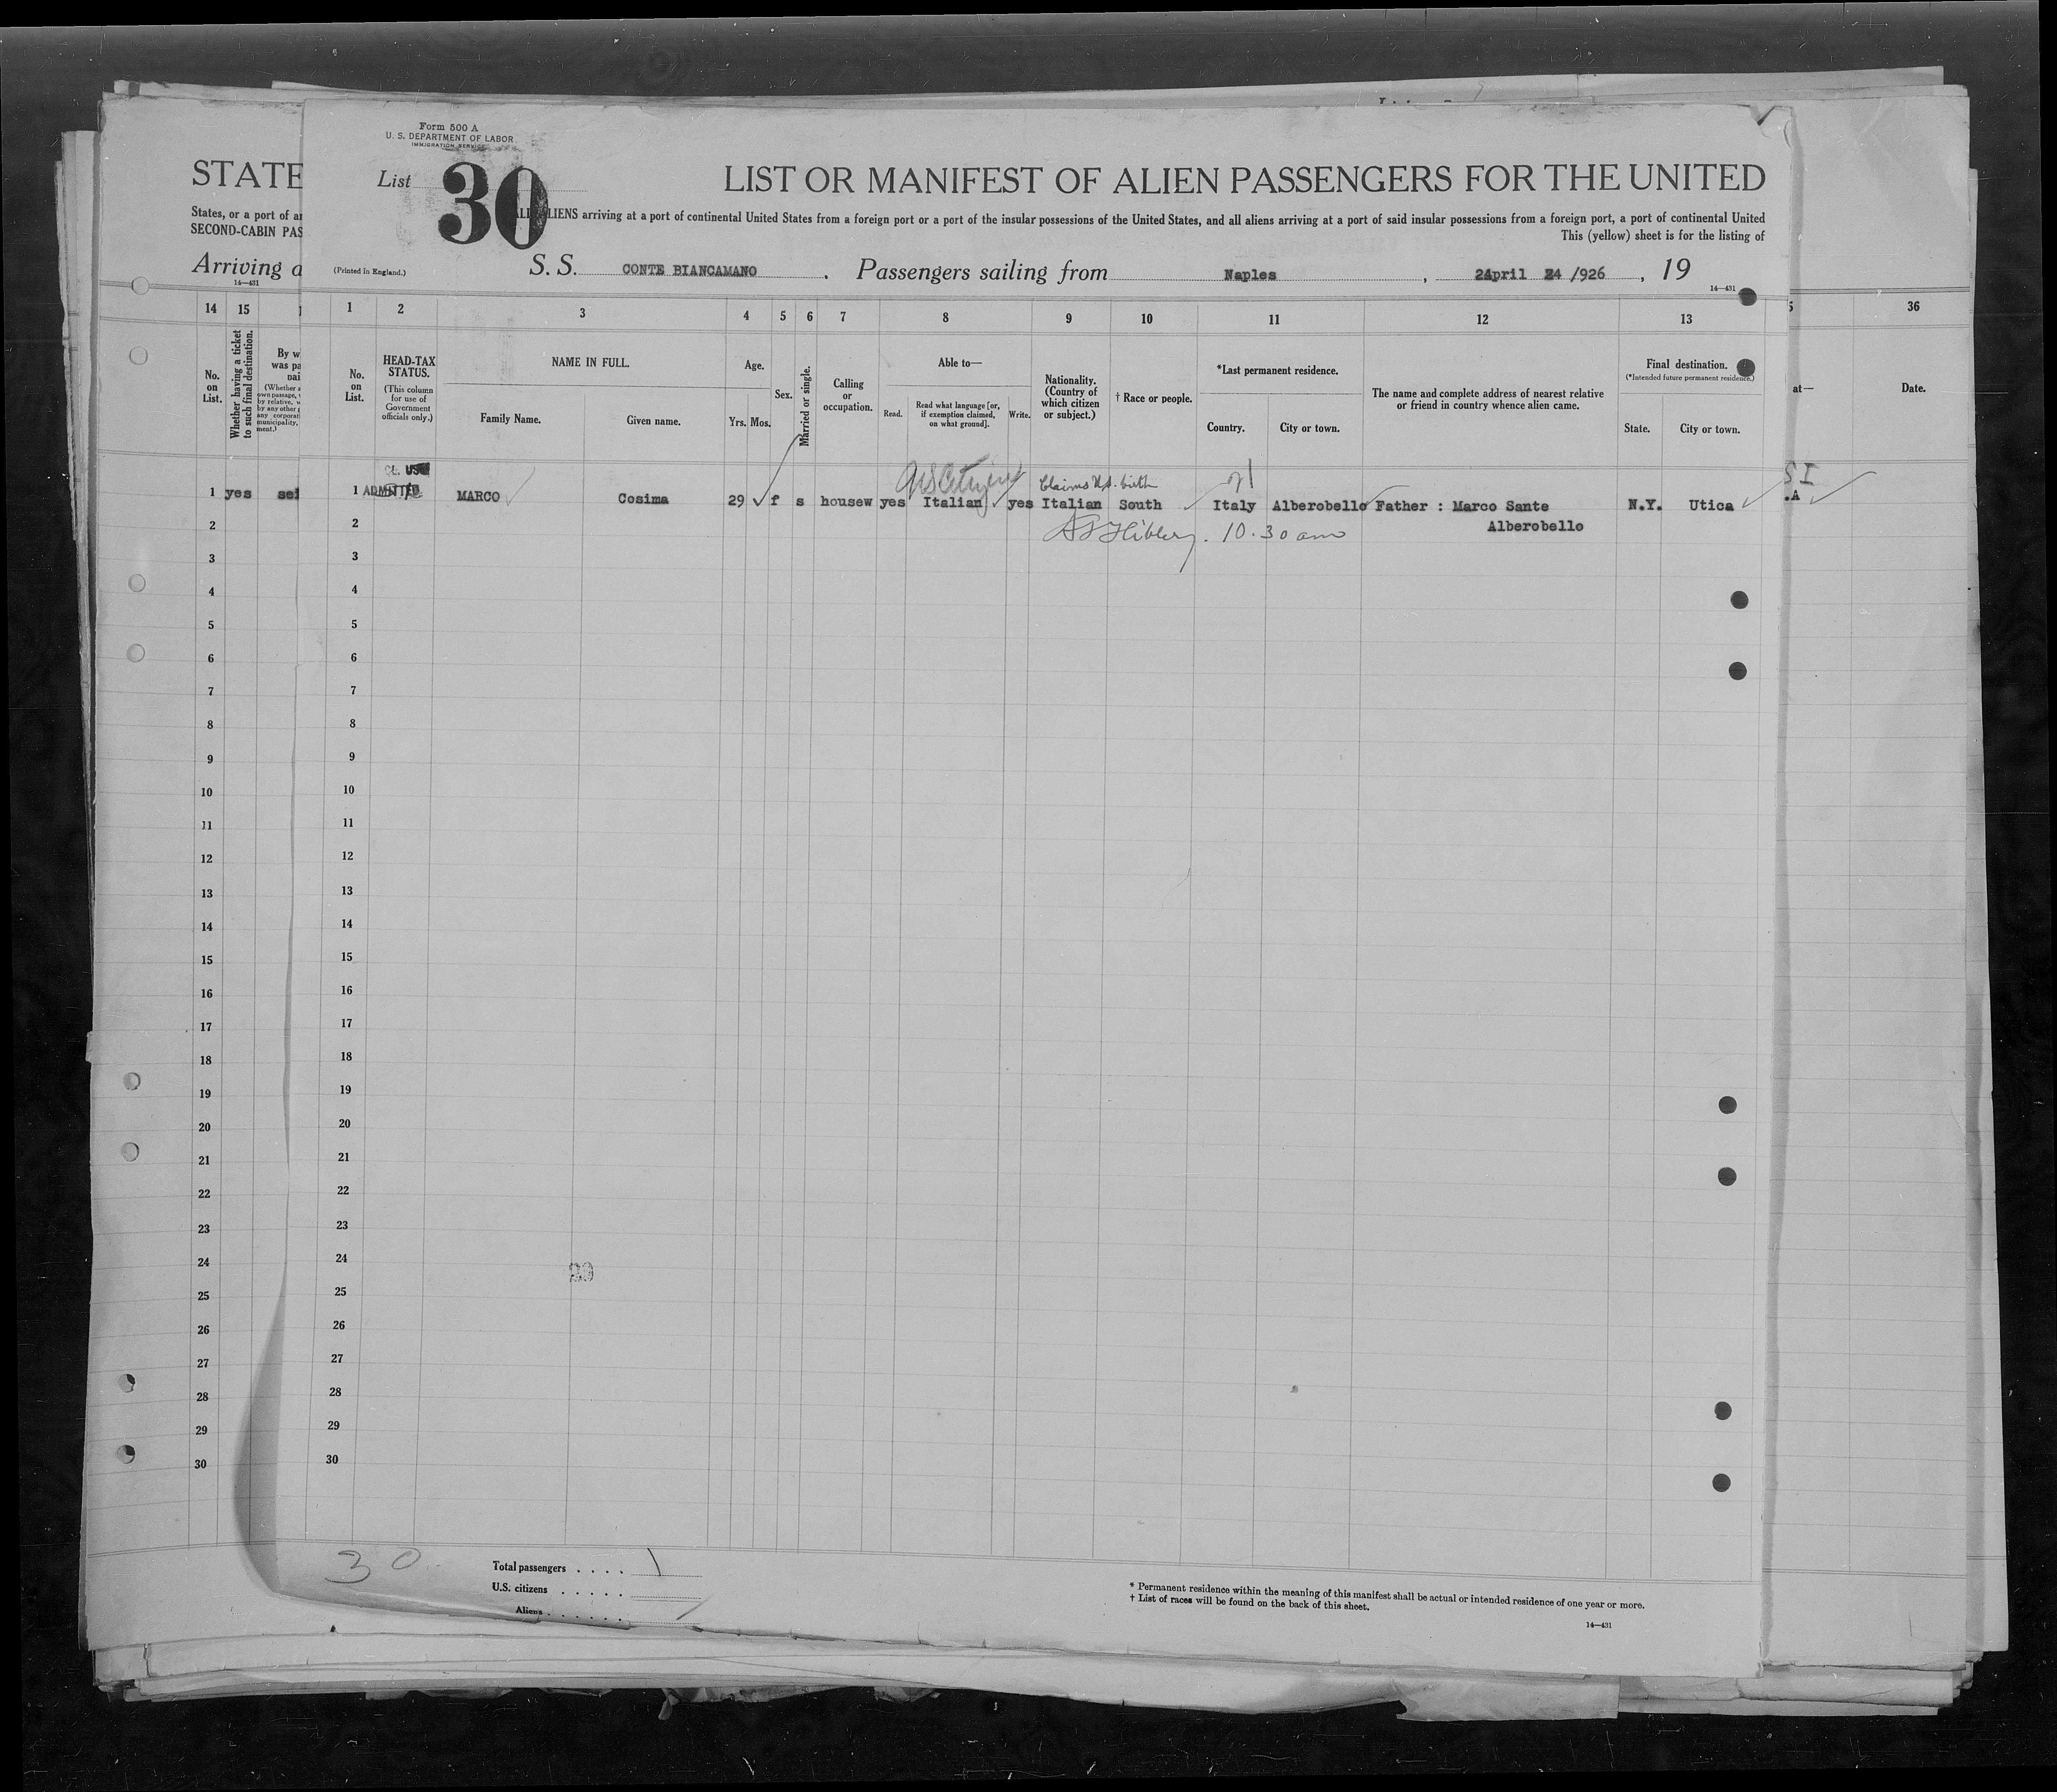 Form 500 A
U. S. DEPARTMENT OF LABOR
IMMIGRATION SERVICE
List 30
LIST OR MANIFEST OF ALIEN PASSENGERS FOR THE UNITED
ALIENS arriving at a port of continental United States from a foreign port or a port of the insular possessions of the United States, and all aliens arriving at a port of said insular possessions from a foreign port, a port of continental United
This (yellow) sheet is for the listing of
(Printed in England.)
S. S. CONTE BIANCAMANO . Passengers sailing from Naples , April 24 /926 , 19
14—431
STATE
States, or a port of
SECOND-CABIN PAS
Arriving a
14—431
14 15
No. on List.
Whether having a ticket to such final destination.
By w
was pa
1 2 3 4 5 6 7 8 9 10 11 12 13
36
No. on List.
HEAD-TAX STATUS.
(This column for use of Government officials only.)
NAME IN FULL.
Family Name. Given name.
Age.
Yrs. Mos.
Sex.
Married or single.
Calling or occupation.
Able to—
Read. Read what language [or, if exemption claimed, on what ground]. Write.
Nationality. (Country of which citizen or subject.)
† Race or people.
*Last permanent residence.
Country. City or town.
The name and complete address of nearest relative or friend in country whence alien came.
Final destination.
(*Intended future permanent residence.)
State. City or town.
at—
Date.
US Citizen Claims U.S. birth
S I
1 yes sel
1 ADMITTED MARCO Cosima 29 f s housew yes Italian yes Italian South Italy Alberobello Father : Marco Sante N.Y. Utica
.A
Alberobello
10.30 am
2 2
3 3
4 4
5 5
6 6
7 7
8 8
9 9
10 10
11 11
12 12
13 13
14 14
15 15
16 16
17 17
18 18
19 19
20 20
21 21
22 22
23 23
24 24
25 25
26 26
27 27
28 28
29 29
30 30
30
Total passengers . . . . 1
U.S. citizens . . . . .
Aliens . . . . . .
* Permanent residence within the meaning of this manifest shall be actual or intended residence of one year or more.
† List of races will be found on the back of this sheet.
14—431